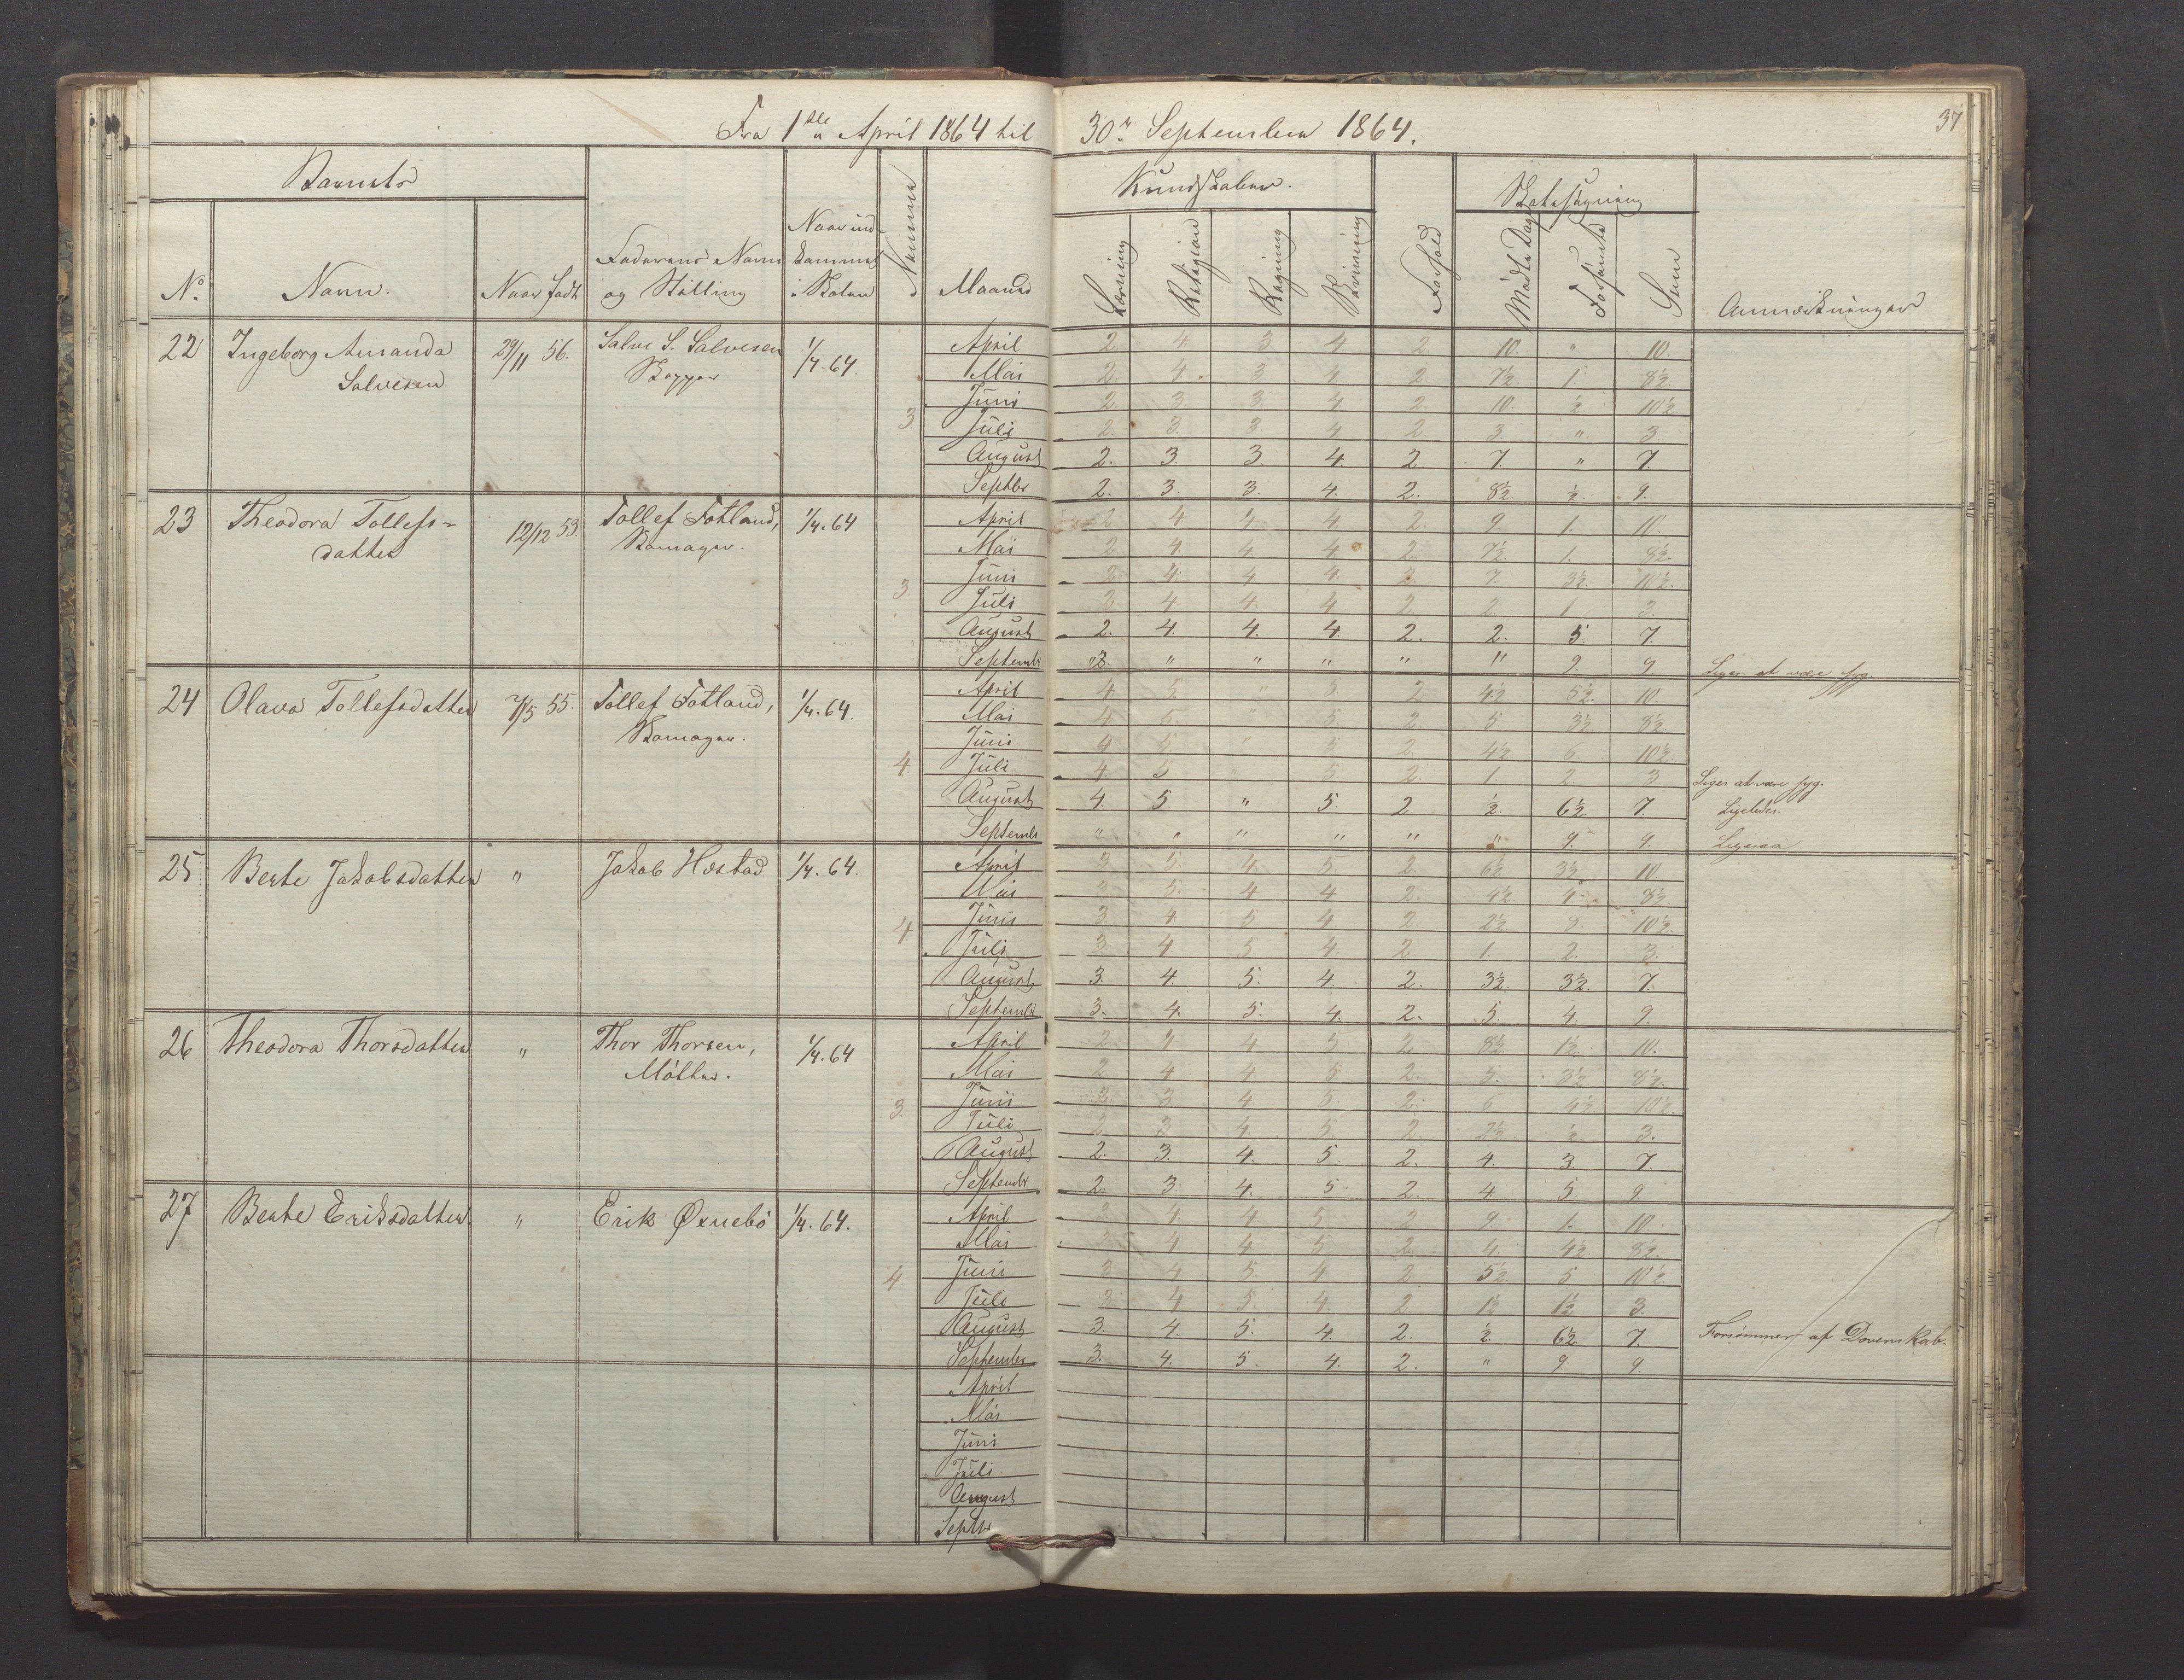 Fra 1ste April 1864 til 30te September 1864.
37
Barnets
Kundskaber.
Skolesøgning
No.
Navn.
Naar født
Faderens Navn og Stilling
Naar indkommet i Skolen
Nummer
Maaned
Læsning
Religion
Regning
Skrivning
Forhold
Mødte Dage
Forsømte
Sum
Anmærkninger
22 Ingeborg Amanda Salvesen 29/11 56. Salve S. Salvesen 1/4 64. 3.
April 2. 4 3 4 2. 10. " 10.
Mai 2. 4. 3 4 2 7½ 1. 8½.
Juni 2 3 3. 4 2 10. ½ 10½
Juli 2. 3. 3. 4 2 3. " 3
August 2. 3. 3. 4. 2 7. " 7.
Septbr 2. 3. 3. 4. 2. 8½ ½ 9.
23 Theodora Tollefs-datter 12/12 53. Tollef Fotland, 1/4. 64 3
April 2 4 4. 4. 2. 9. 1. 10.
Mai 2. 4. 4. 4 2. 7½ 1. 8½.
Juni 2 4 4 4. 2. 7. 3½. 10½.
Juli 2. 4 4. 4 2 2. 1 3.
August 2. 4. 4. 4. 2. 2. 5. 7.
Septembr " " " " " 9. 9 Siges at være syg.
24 Olava Tollefsdatter 7/5 55. Tollef Fotland, 1/4. 64. 4.
April 4. 5. " 5 2 4½ 5½. 10.
Mai 4 5. " 5. 2. 5. 3½ 8½.
Juni 4 5 " 5 2 4½ 6 10½
Juli 4. 5 " 5. 2. 1 2 3 Siges at være syg.
August 4. 5. " 5. 2. ½. 6½ 7. Ligeledes.
Septembr " " " " " " 9. 9. Ligesaa
25 Berte Jakobsdatter " Jakob Hostad 1/4. 64. 4
April 3 5. 4. 5. 2. 6½ 3½ 10.
Mai 3 5. 4 4 2. 4½ 4 8½
Juni 3 4 5 4 2. 2½ 8. 10½.
Juli 3. 4 5 4. 2 1. 2. 3.
August 3. 4. 5. 4. 2. 3½ 3½. 7.
Septembr 3. 4. 5. 4. 2. 5. 4. 9.
26 Theodora Thorsdatter " Thor Thorsen, 1/4. 64 3
April 2 4 4 5 2 8½ 1½ 10.
Mai 2 4 4 5 2. 5. 3½ 8½.
Juni 2 3 4 5. 2. 6 4½ 10½
Juli 2 3 4. 5. 2 2½ ½ 3.
August 2. 3. 4. 5. 2. 4. 3 7.
Septembr 2. 3. 4. 5. 2. 4 5 9.
27 Berte Eriksdatter " Erik Øxnebö 1/4. 64. 4
April 3 4 4 5 2 9 1. 10.
Mai 3 4 4 5 2 4. 4½ 8½.
Juni 3 4 5 4 2 5½ 5 10½
Juli 3 4 5. 4 2. 1½ 1½ 3.
August 3. 4. 5. 4. 2. ½. 6½ 7. Forsömmer af Dovenskab.
Septembr 3. 4. 5. 4. 2. " 9. 9.
April
Mai
Juni
Juli
August
Septbr